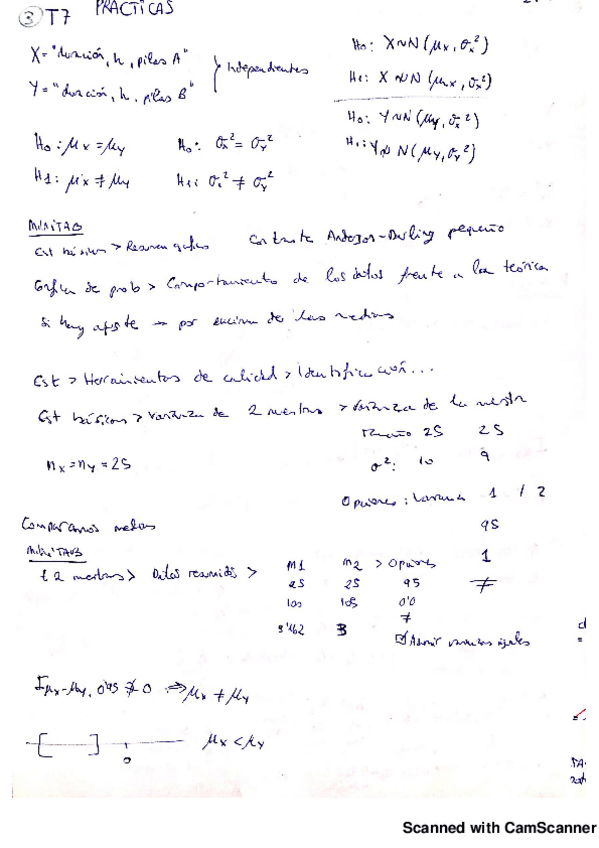 ③ T7 PRÁCTICAS
X = "duración, h, pilas A"
Y = "duración, h, pilas B"
} Independientes
H₀: X ~ N (μx, σx²)
H₁: X ≁ N (μx, σx²)
H₀: Y ~ N (μy, σx²)
H₁: Y ≁ N (μy, σy²)
H₀: μx = μy H₀: σx² = σy²
H1: μx ≠ μy H₁: σx² ≠ σy²
MINITAB
Est básicos > Resumen gráfico Contraste Anderson-Darling pequeño
Gráfica de prob > Comportamiento de los datos frente a la teórica
Si hay ajuste → por encima de las medias
Est > Herramientas de calidad > Identificación...
Est básicos > varianza de 2 muestras > varianza de la muestra
nx = ny = 25
Tamaño 25 25
σ²: 10 9
Opciones: Varianza 1 / 2
95
1
≠
Comparamos medias
MINITAB
t 2 muestras > Datos resumidos >
M1 M2 > Opciones
25 25 95
100 105 0'0
≠
3'162 3
☑ Asumir varianzas iguales
I μx-μy, 0'95 ∌ 0 ⇒ μx ≠ μy
[ ] 0 μx < μy
Scanned with CamScanner